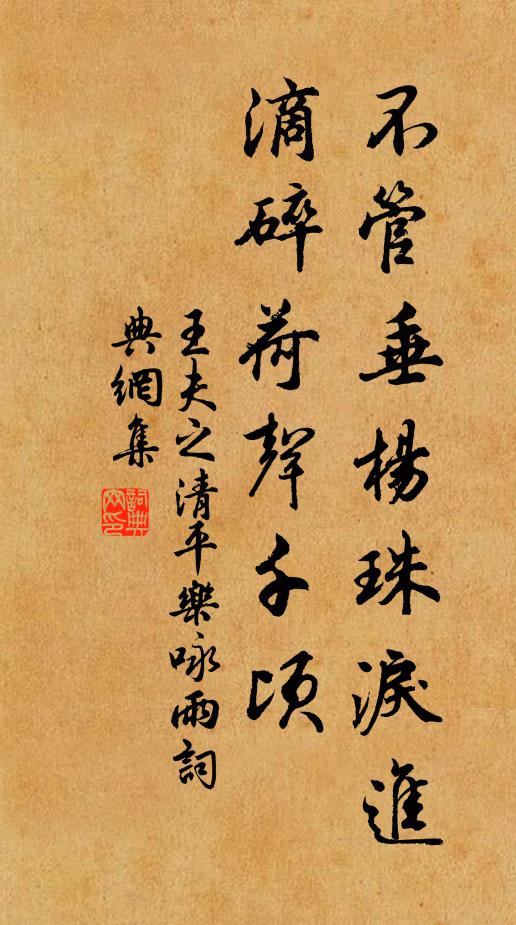 不管垂楊珠淚進
滴碎荷聲千頃
王夫之清平樂咏雨詞
典網集
詞典網印